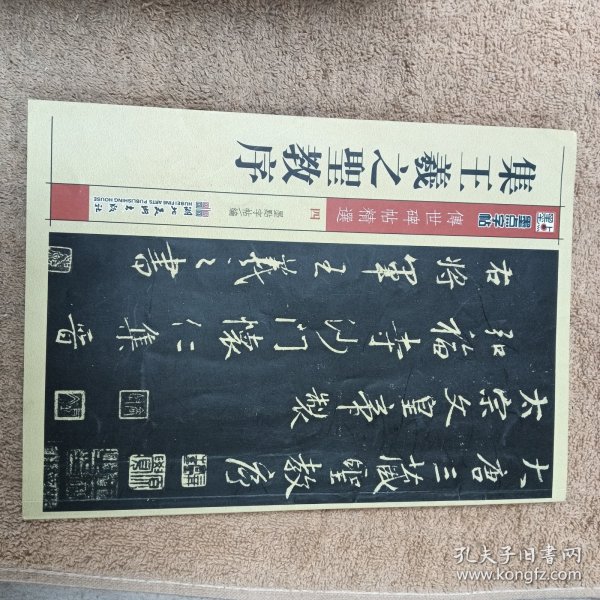 集王羲之聖教序
墨点字帖
傳世碑帖精選
四
墨點字帖 編
湖北美術出版社
HUBEI FINE ARTS PUBLISHING HOUSE
大唐三藏聖教序
太宗文皇帝製
弘福寺沙門懷仁集晉
右將軍王羲之書
孔夫子旧书网
www.kongfz.com